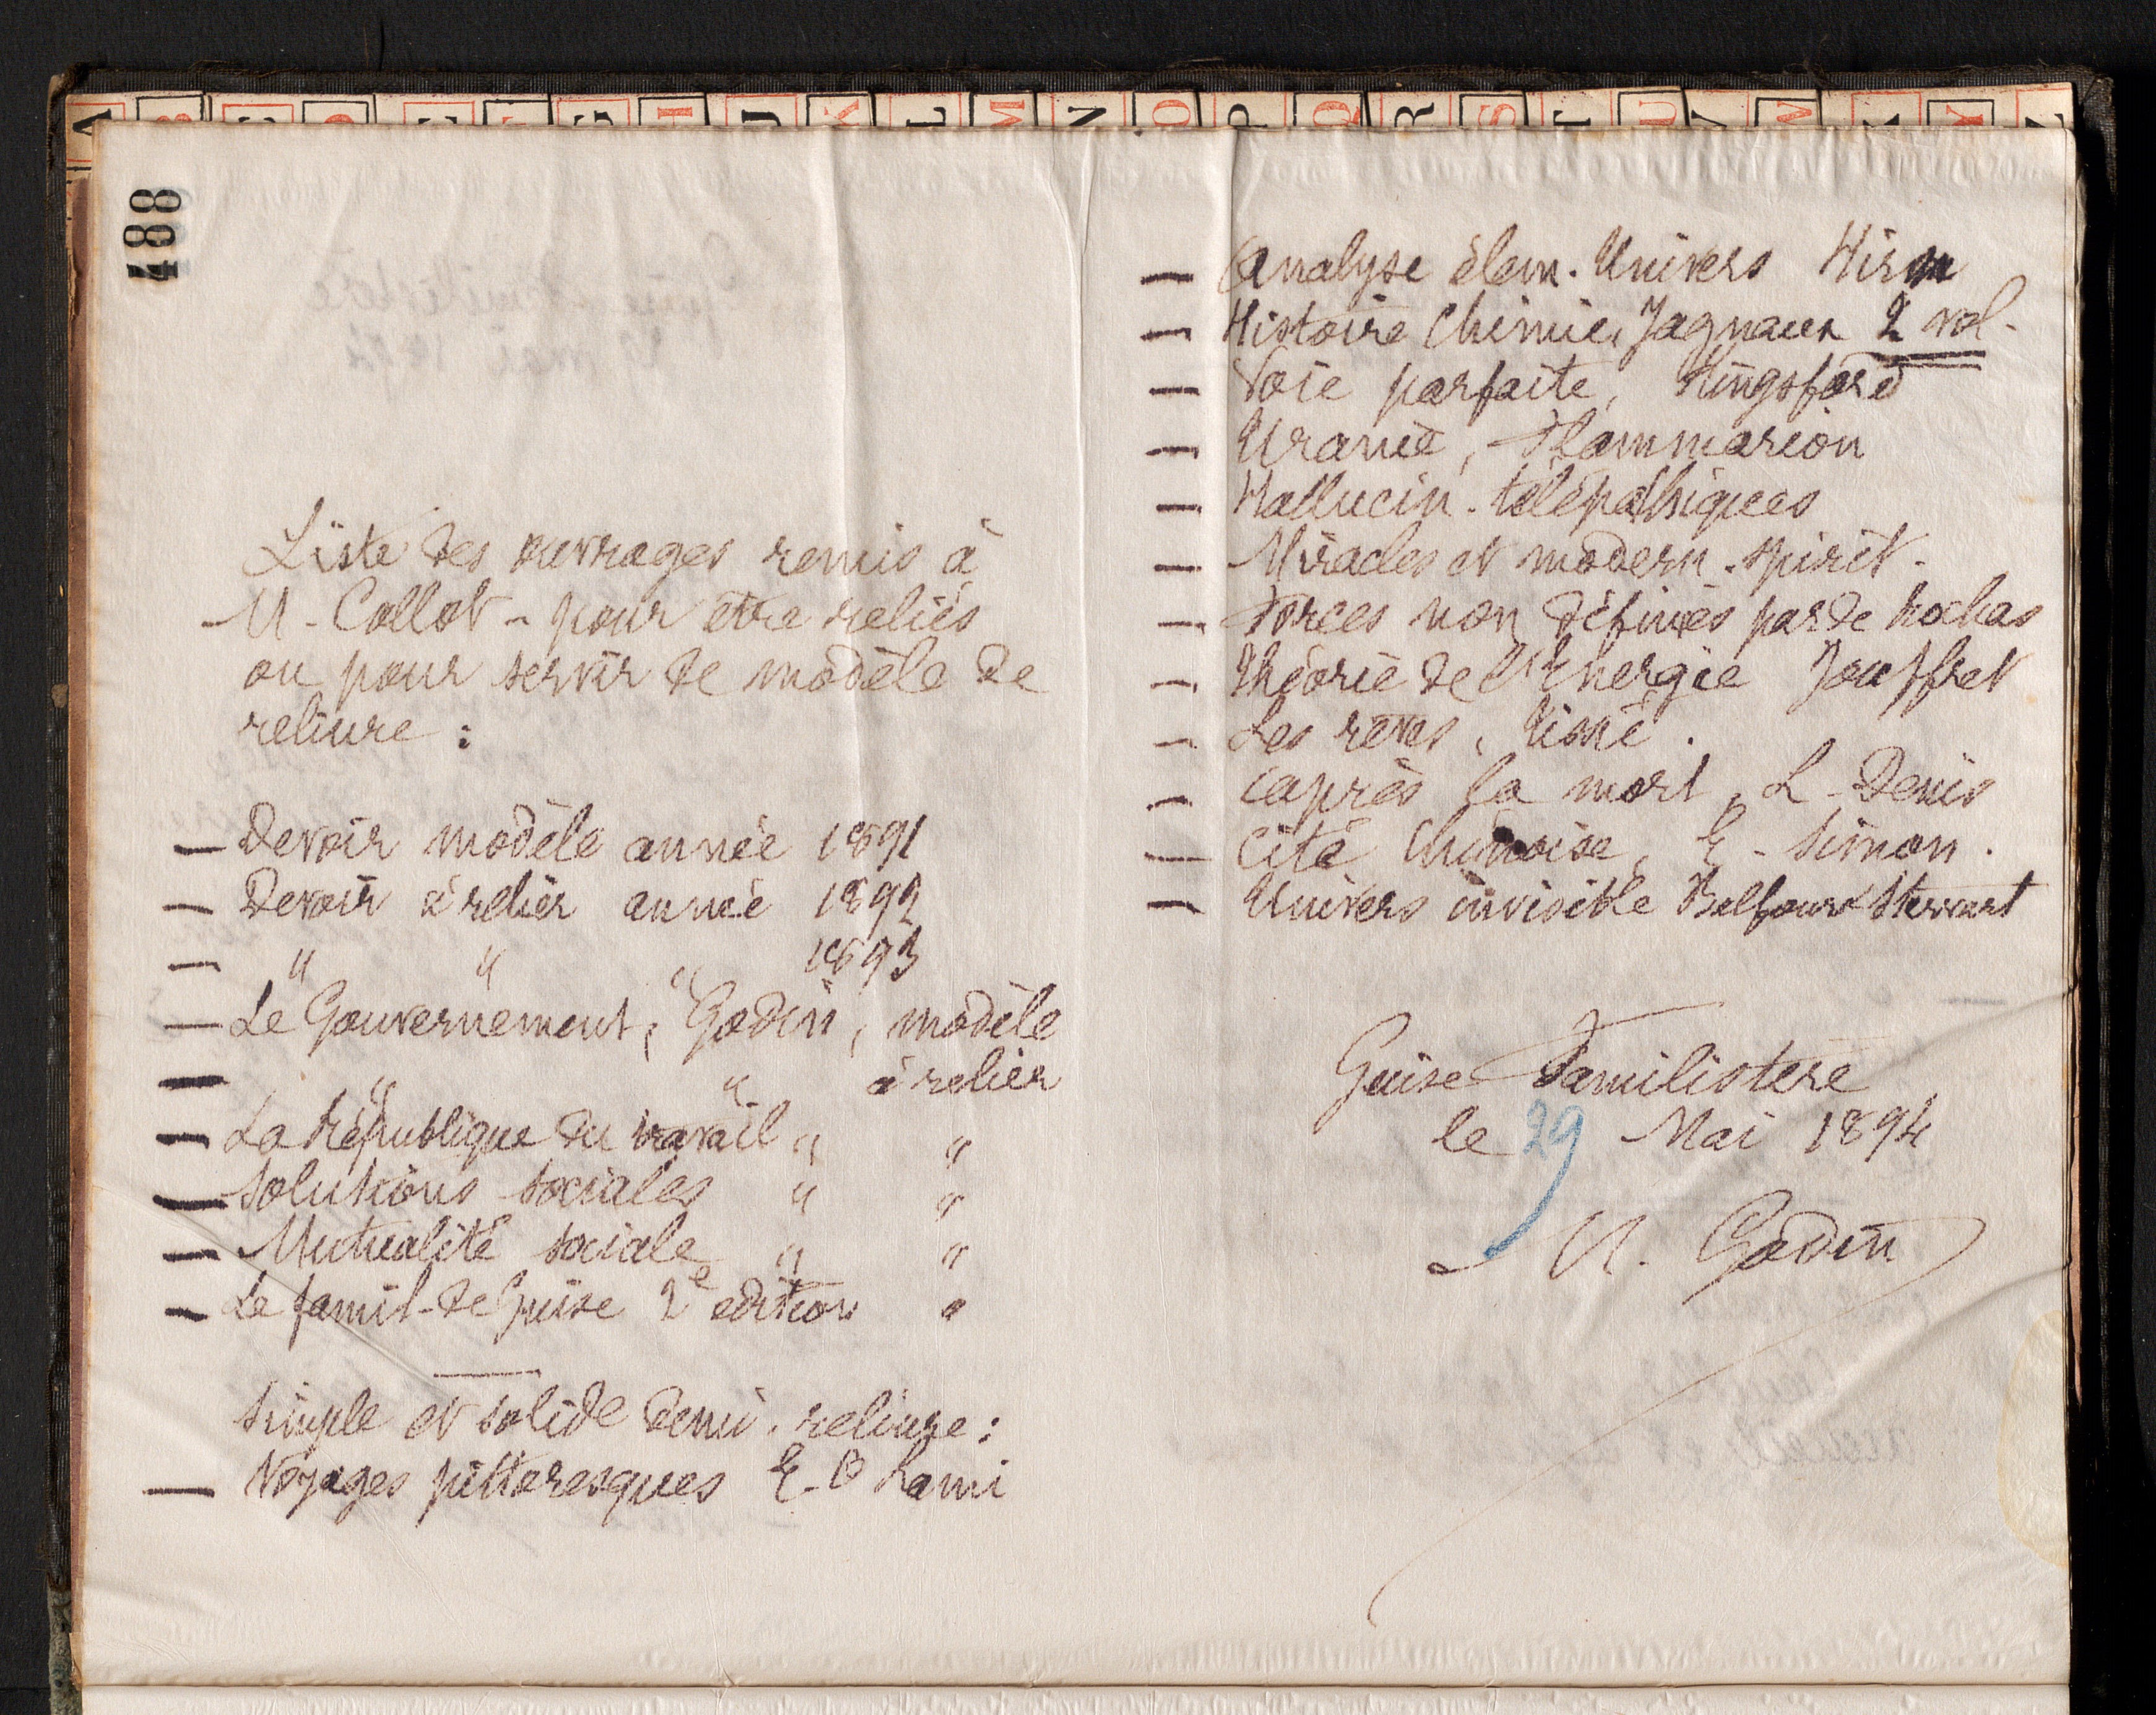 488
Liste des ouvrages remis à
M. Collot - pour être reliés
ou pour servir de modèle de
reliure :
— Devoir modèle année 1891
— Devoir à relier année 1892
— " " " 1893
— Le Gouvernement, Godin, modèle
— " " à relier
— La République du travail " "
— Solutions sociales " "
— Mutualité sociale " "
— Le famil. de Guise 2e édition "
Simple et solide demi-reliure :
— Voyages pittoresques E. O Lami
— Analyse élem. Univers Hirn
— Histoire Chimie, Jagnaux 2 vol.
— Voie parfaite, Kingsford
— Uranie, Flammarion
— Hallucin. télépathiques
— Miracles et modern. spirit.
— Forces non définies par de Rochas
— Théorie de l'Energie Jouffret
— Les rêves, Tissié.
— Après la mort, L. Denis
— Cité Chinoise, E. Simon.
— Univers invisible Balfour Stewart
Guise Familistère
le 29 Mai 1894
M. Godin